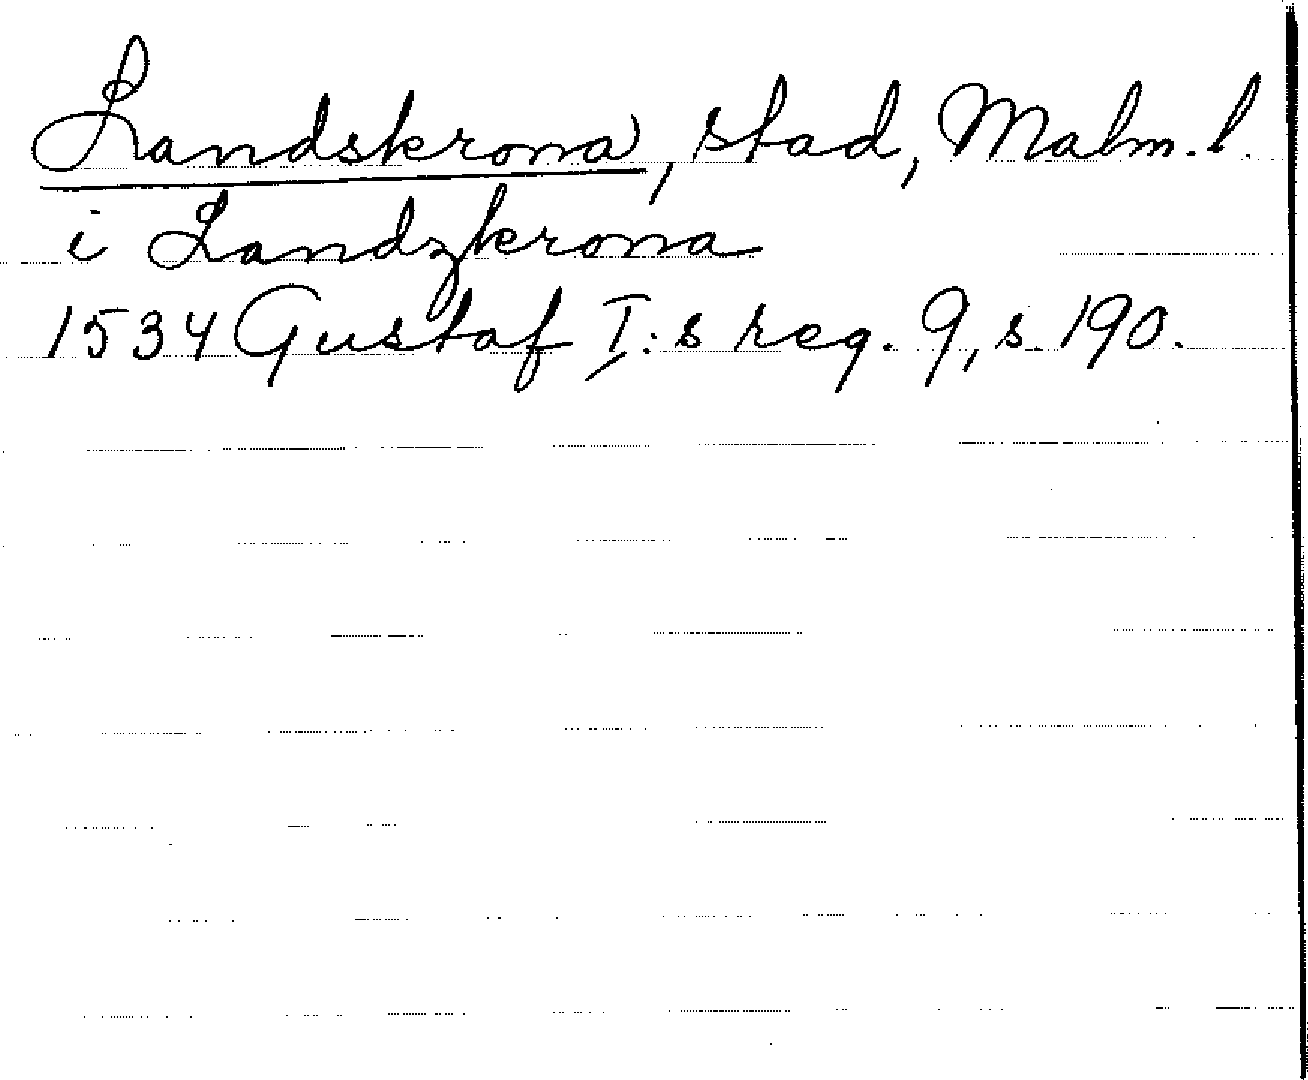 Landskrona, stad, Malm. l.
i Landzkrona
1534 Gustaf I:s reg. 9, s. 190.